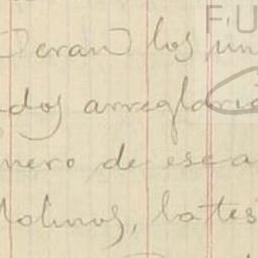 eran los un
dos arreglaria
nero de esca
Molinos, bates